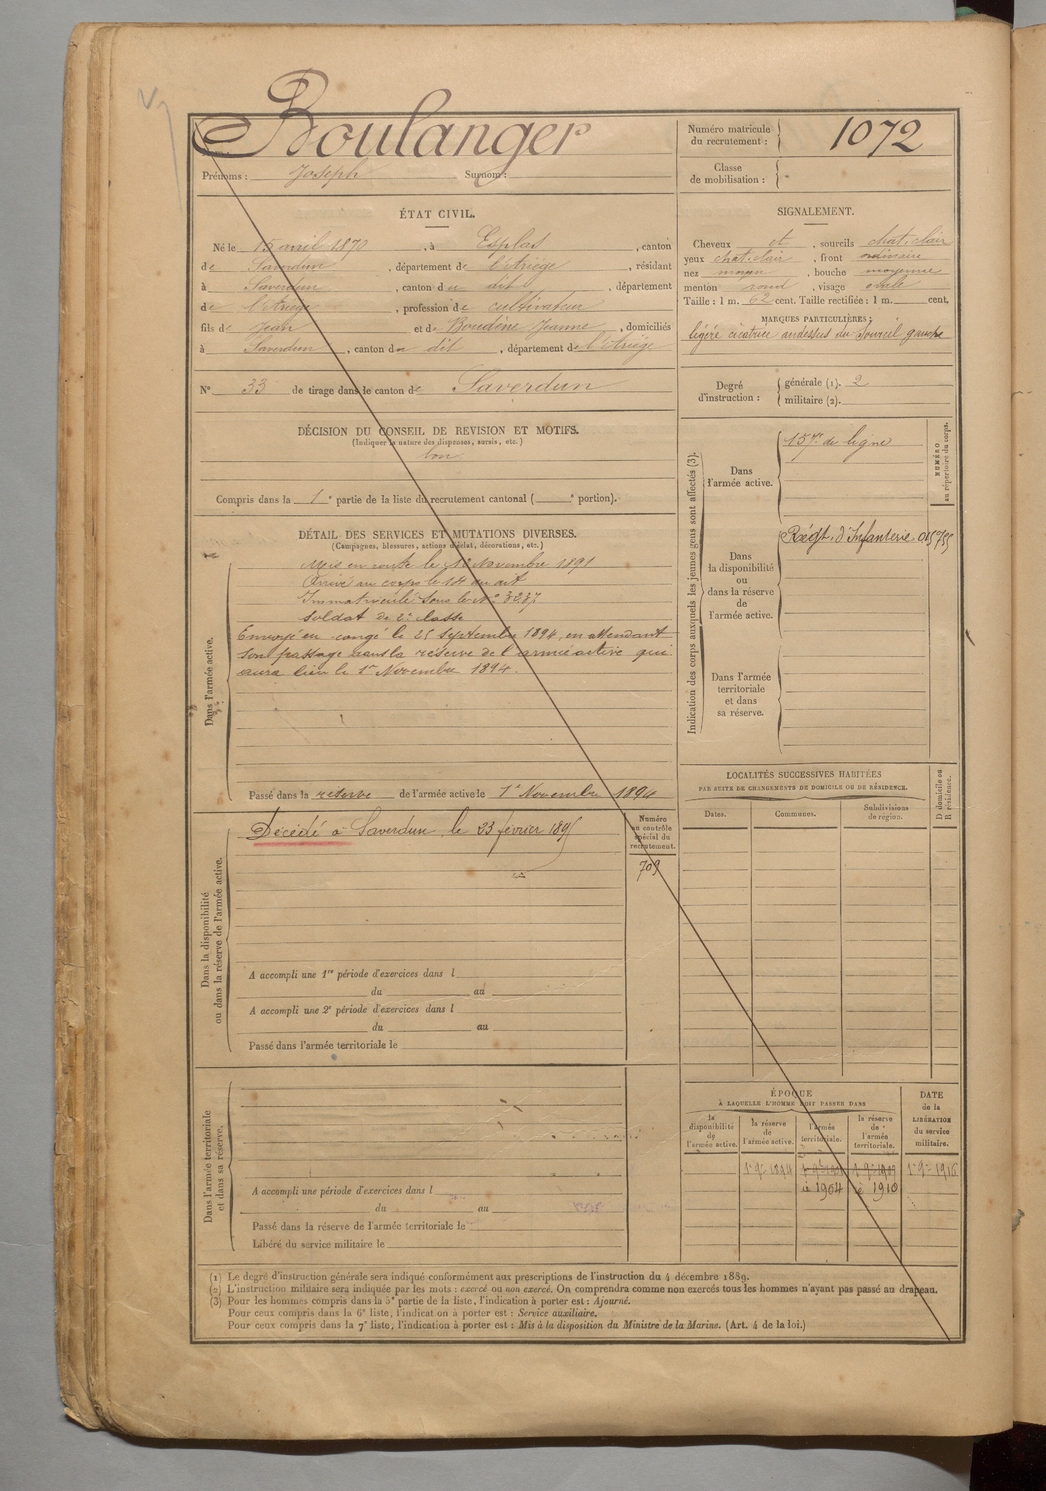 Boulanger
Prénoms : Joseph Surnom :
Numéro matricule du recrutement : 1072
Classe de mobilisation :
ÉTAT CIVIL.
Né le 15 avril 1870, à Esplas, canton
de Saverdun, département de l'Ariège, résidant
à Saverdun, canton du dit, département
de l'Ariège, profession de cultivateur
fils de Jean et de Boudène Jeanne, domiciliés
à Saverdun, canton du dit, département de l'Ariège
N° 33 de tirage dans le canton de Saverdun
SIGNALEMENT.
Cheveux et, sourcils chat. clair
yeux chat. clair, front ordinaire
nez moyen, bouche moyenne
menton rond, visage ovale
Taille : 1 m. 62 cent. Taille rectifiée : 1 m. cent.
MARQUES PARTICULIÈRES :
légère cicatrice au dessus du sourcil gauche
Degré d'instruction : générale (1). 2
militaire (2).
DÉCISION DU CONSEIL DE REVISION ET MOTIFS.
(Indiquer la nature des dispenses, sursis, etc.)
bon
Compris dans la 1e partie de la liste du recrutement cantonal ( e portion).
DÉTAIL DES SERVICES ET MUTATIONS DIVERSES.
(Campagnes, blessures, actions d'éclat, décorations, etc.)
Dans l'armée active.
Mis en route le 12 Novembre 1891
Arrivé au corps le 14 du dit
Immatriculé sous le N° 3287
Soldat de 2e classe
Envoyé en congé le 25 Septembre 1894, en attendant
son passage dans la réserve de l'armée active qui
aura lieu le 1er Novembre 1894.
Passé dans la réserve de l'armée active le 1er Novembre 1894
Indication des corps auxquels les jeunes gens sont affectés (3).
NUMÉRO au répertoire du corps.
Dans l'armée active.
de ligne
Dans la disponibilité ou dans la réserve de l'armée active.
Régt. d'Infanterie
Dans l'armée territoriale et dans sa réserve.
Dans la disponibilité ou dans la réserve de l'armée active.
Décédé à Saverdun, le 23 février 1895
Numéro au contrôle spécial du recrutement.
709
A accompli une 1re période d'exercices dans l
du au
A accompli une 2e période d'exercices dans l
du au
Passé dans l'armée territoriale le
LOCALITÉS SUCCESSIVES HABITÉES
PAR SUITE DE CHANGEMENTS DE DOMICILE OU DE RÉSIDENCE.
Dates. Communes. Subdivisions de région. D domicile ou R résidence.
Dans l'armée territoriale et dans sa réserve.
A accompli une période d'exercices dans l
du au
Passé dans la réserve de l'armée territoriale le
Libéré du service militaire le
ÉPOQUE
À LAQUELLE L'HOMME DOIT PASSER DANS
la disponibilité de l'armée active. la réserve de l'armée active. l'armée territoriale. la réserve de l'armée territoriale.
DATE de la LIBÉRATION du service militaire.
1er 9bre 1894 1er 9bre 1916
1904 1910
(1) Le degré d'instruction générale sera indiqué conformément aux prescriptions de l'instruction du 4 décembre 1889.
(2) L'instruction militaire sera indiquée par les mots : exercé ou non exercé. On comprendra comme non exercés tous les hommes n'ayant pas passé au drapeau.
(3) Pour les hommes compris dans la 5e partie de la liste, l'indication à porter est : Ajourné.
Pour ceux compris dans la 6e liste, l'indication à porter est : Service auxiliaire.
Pour ceux compris dans la 7e liste, l'indication à porter est : Mis à la disposition du Ministre de la Marine. (Art. 4 de la loi.)